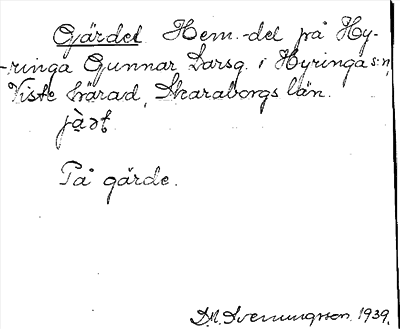 Gärdet Hem.-del på Hy-
-ringa Gunnar Larsg. i Hyringa s:n,
Viste härad, Skaraborgs län.
jàət
På gärde.
D.N. Svenungsson. 1939.